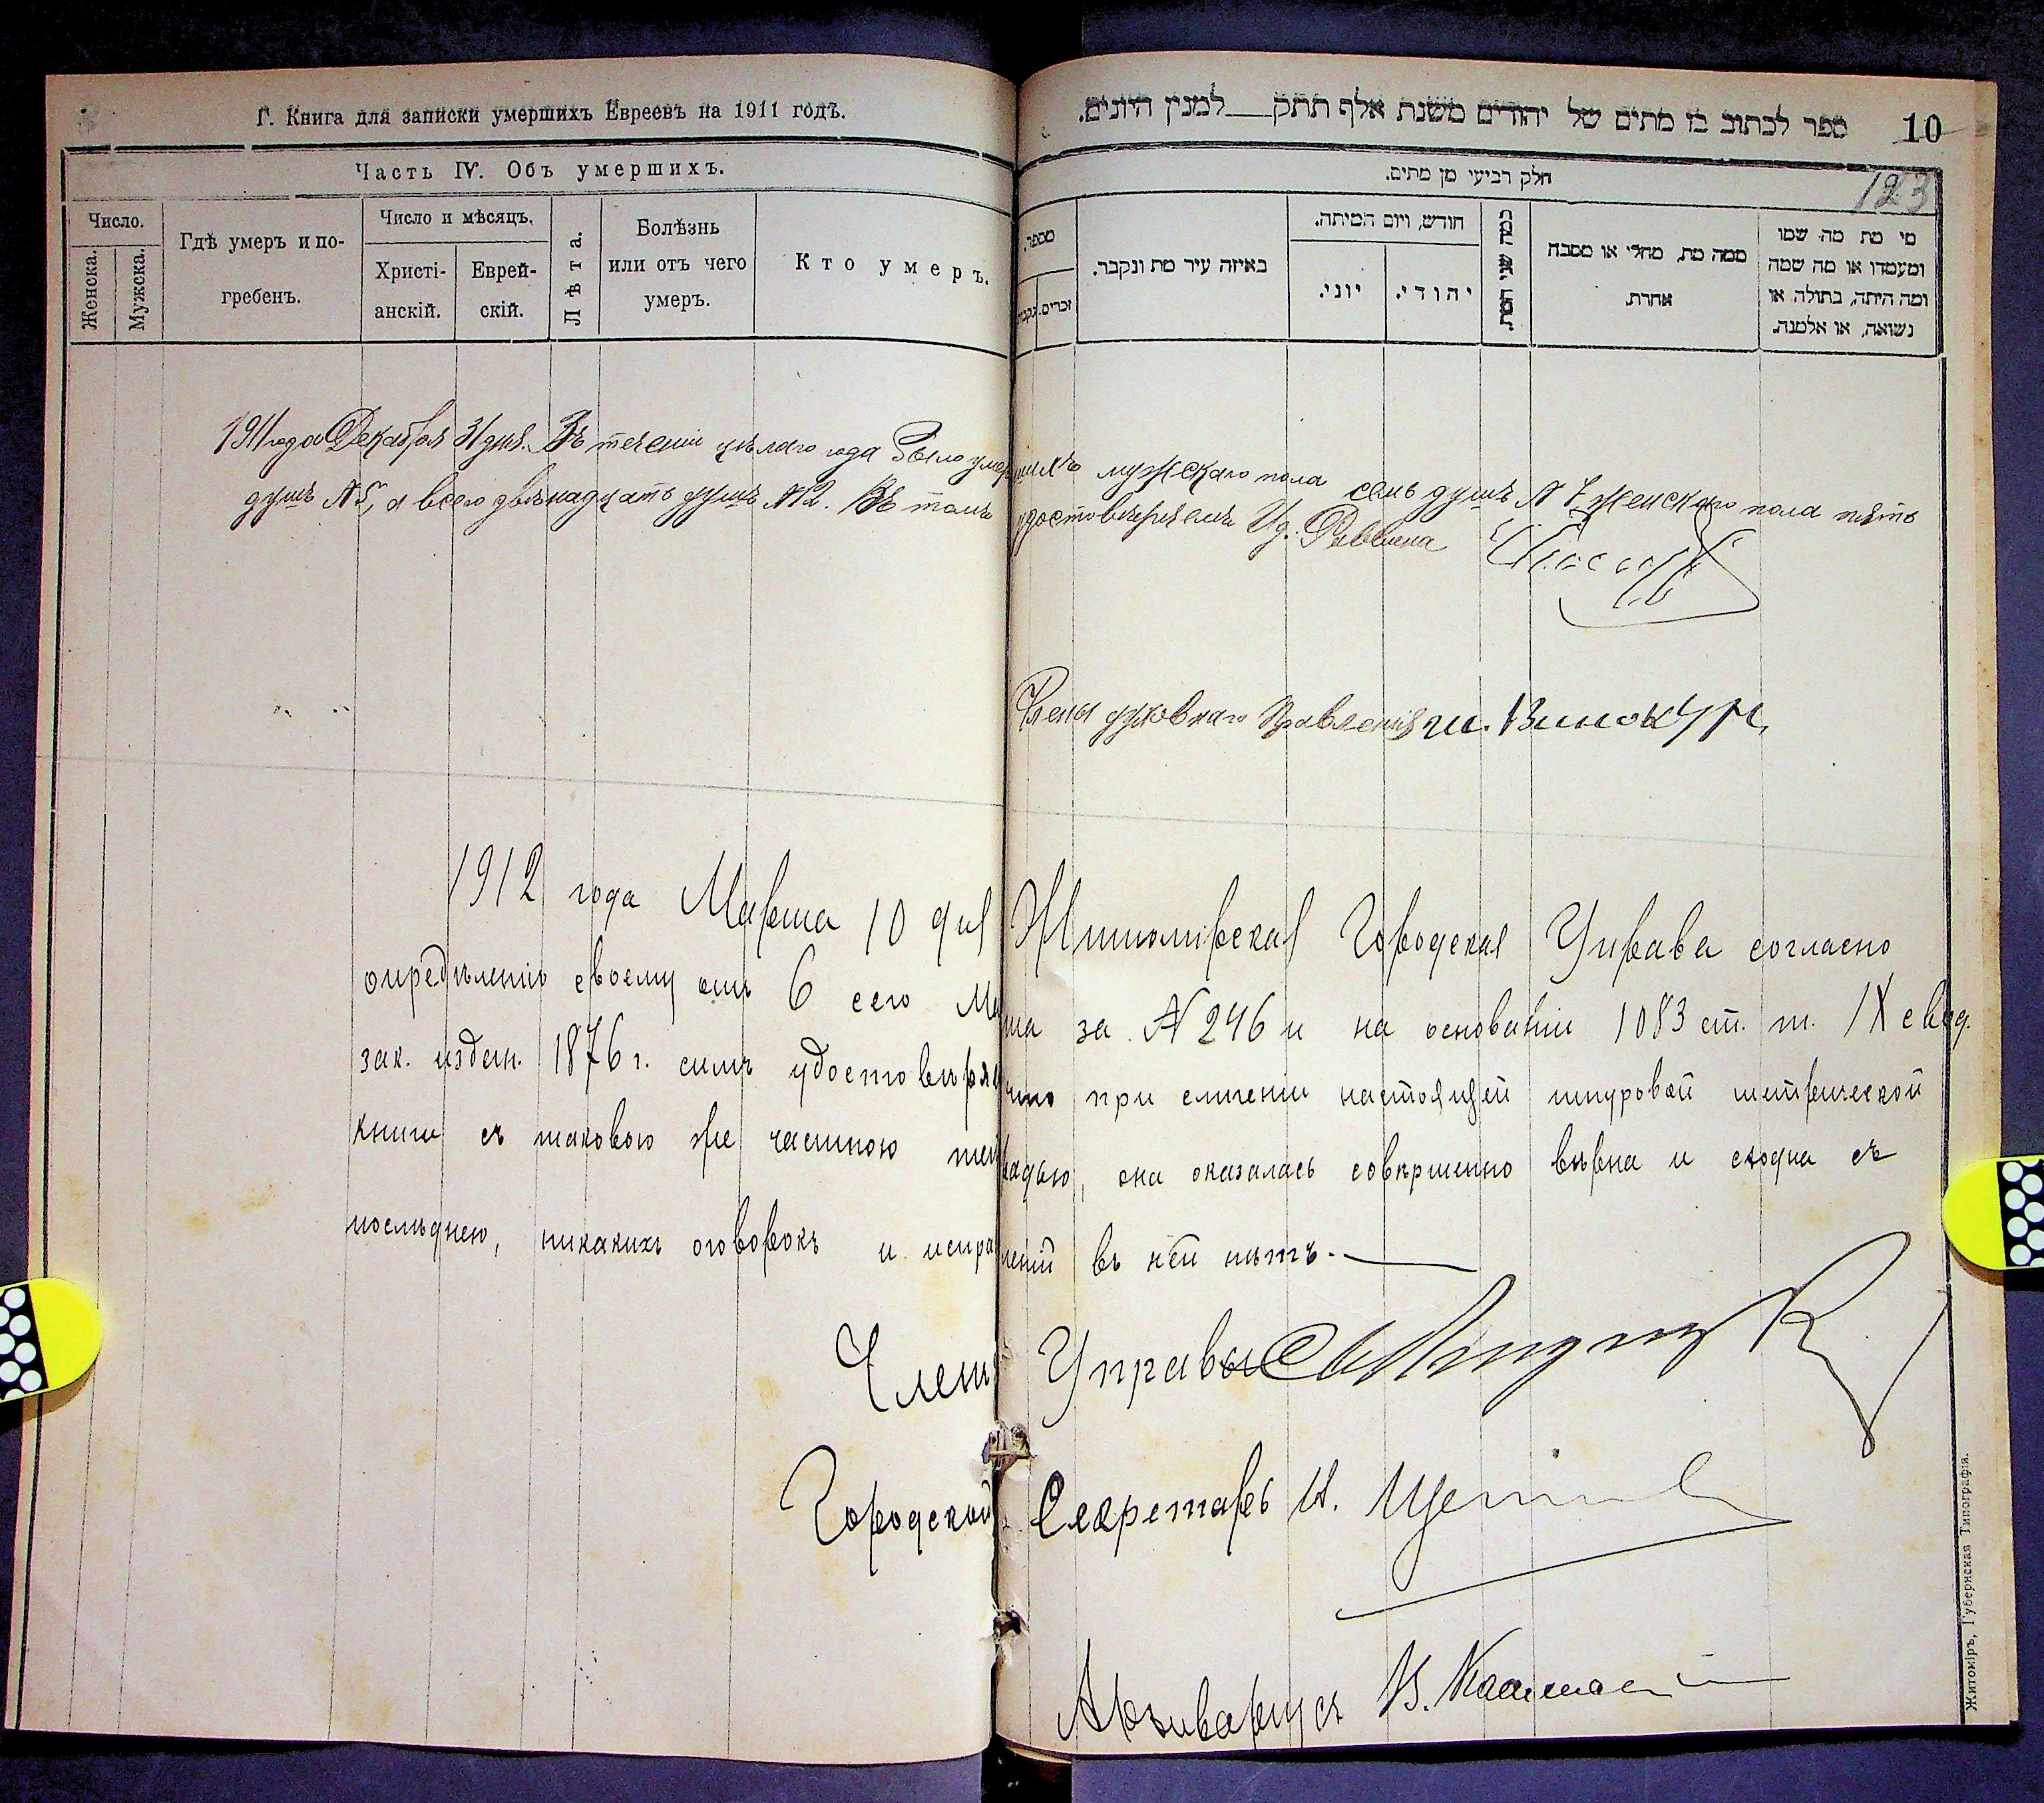 Г. Книга для записки умершихъ Евреевъ на 1911 годъ.
Часть IV. Объ умершихъ.
Число.
Женска.
Мужска.
Гдѣ умеръ и по-
гребенъ.
Число и мѣсяцъ.
Христі-
анскій.
Еврей-
скій.
Лѣта.
Болѣзнь
или отъ чего
умеръ.
Кто умеръ.
ספר לכתוב בו מתים של יהודים משנת אלף תתק למנין היונים.
10
חלק רביעי מן מתים.
123
מספר.
זכרים.
באיזה עיר מת ונקבר.
חודש, ויום המיתה.
יוני.
יהודי.
כמה שני המת.
ממה מת, מחלי או מסבה
אחרת.
מי מת מה שמו
ומעמדו או מה שמה
ומה היתה, בתולה או
נשואה, או אלמנה.
1911 года Декабря 31 дня. Въ теченіи цѣлаго года было умершихъ мужескаго пола семь душъ № 7 женскаго пола пять
душъ № 5, а всего двѣнадцать душъ № 12. Въ томъ удостовѣряемъ И д. Раввина
Члены духовнаго Правленія Ш. Винокуръ
1912 года Марта 10 дня Житомірская Городская Управа согласно
опредѣленію своему отъ 6 сего Марта за № 246 и на основаніи 1083 ст. т. IX свод.
зак. издан. 1876 г. симъ удостовѣряетъ что при сличеніи настоящей шнуровой метрической
книги съ таковою же частною тетрадью, она оказалась совершенно вѣрна и сходна съ
послѣднею, никакихъ оговорокъ и исправленій въ ней нѣтъ.
Членъ Управы
Городской Секретарь И.
Архиваріусъ В.
Житоміръ, Губернская Типографія.